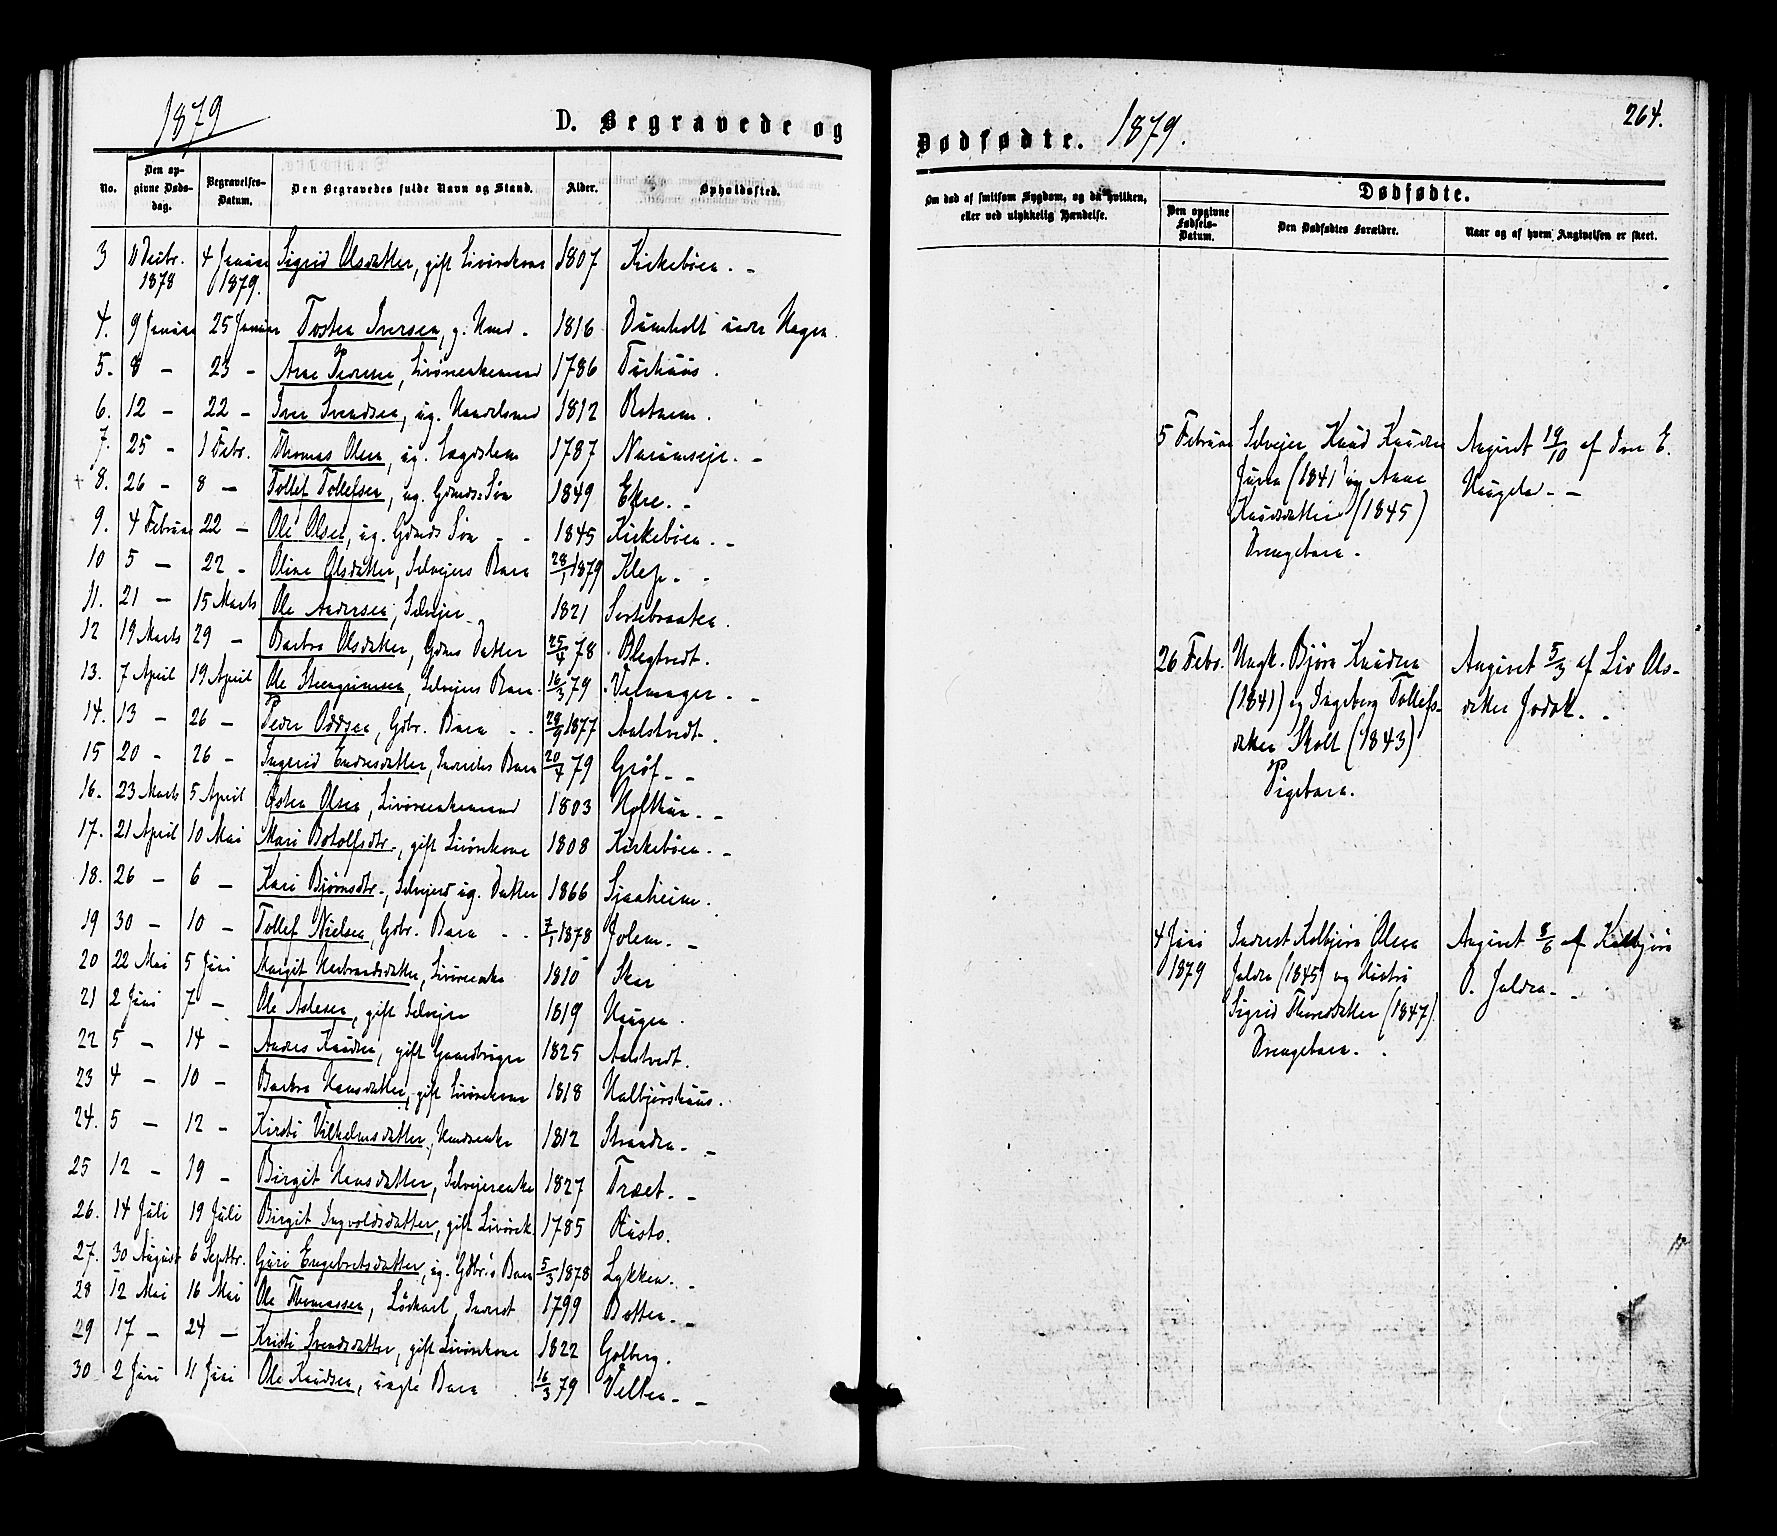 1879
D. Begravede og
No.
Den op-
givne Døds-
dag.
Begravelses-
Datum.
Den Begravedes fulde Navn og Stand.
Alder.
Opholdssted.
3 11 Decbr. 4 Januar Sigrid Olsdatter, gift 1807 Kirkebøen. -
1878 1879.
4. 9 Januar 25 Januar Tosten Iversen, g. 1816
5. 8 - 23 - Arne 1786
6. 12 - 22 - Iver Svendsen, ug. 1812 Rotnem.
7. 25 - 1 Febr. Thomas Olsen, ug. Lægdslem 1787
8. 26 - 8 - Tollef Tollefsen, ug. Gdmds Søn 1849 Ekre. -
9. 4 Februar 22 - Ole Olsen, ug. Gdmds Søn - - 1845 Kirkebøen. -
10 5 - 22 - Oline Olsdatter, Selveiers Barn 28/1 1879 Klep. -
11. 21 - 15 Marts Ole Andersen, Selveier 1821 Sortebraaten.
12 19 Marts 29 - Barbro Olsdatter, Gdms Datter 25/4 78
13. 7 April 19 April Ole Steengrimsen, Selveiers Barn. 16/3 79 Veimager. -
14. 13 - 26 - Peder Oddsen, Gdbr. Barn - - 1877 Aalstvedt.
15 20 - 26 - Ingerid Endresdatter, Inderstes Barn 20/4 79 Grøf. -
16. 23 Marts 5 April Østen Olsen, 1803
17. 21 April 10 Mai Mari Botolfsdtr., gift 1808 Kirkebøen. -
18. 26 - 6 - Kari Bjørnsdtr., Selveiers ug. Datter 1866 Sjaaheim.
19 30 - 10 - Tollef Nielsen, Gdbr. Barn - - 7/1 1878 Jolem. -
20 22 Mai 5 Juni Margit Herbrandsdatter, 1810 Skar
21 2 Juni 7 - Ole Aslesen, gift Selveier 1819 Haugen.
22 5 - 14 - Anders Knudsen, gift Gaardbruger 1825 Aalstvedt.
23 4 - 10 - Barbro Hansdatter, gift 1818
24. 5 - 12 - Kirsti Vilhelmsdatter, 1812 Stranden. -
25 12 - 19 - Birgit Hansdatter, Selveierenke 1827 Træet. -
26. 14 Juli 19 Juli Birgit Ingvoldsdatter, gift 1785
27. 30 August 6 Septbr. Guri Engebretsdatter, ug. Gdbr.s Barn 5/3 1878 Lykken. -
28 12 Mai 16 Mai Ole Thomassen, Løskarl, Inderst 1799 Botten. -
29 17 - 24 - Kristi Svendsdatter, gift 1822 Golberg.
30 2 Juni 11 Juni Ole Knudsen, uægte Barn 16/3 79 Velten. -
Dødfødte. 1879.
264.
Om død af smitsom Sygdom, og da hvilken,
eller ved ulykkelig Hændelse.
Dødfødte.
Den opgivne
Fødsels-
Datum.
Den Dødfødtes Forældre.
Naar og af hvem Angivelsen er skeet.
5 Februar Selveier Knud Knudsen Angivet 19/10 af E.
(1841) og Anne Haugelo. -
Knudsdatter (1845)
Drengebarn.
26 Febr. Ungk. Bjørn Knudsen Angivet 5/3 af Liv Ols-
(1841) og Ingeborg Tollefs- datter
datter Skolt (1843)
Pigebarn.
4 Juni Inderst Kolbjørn Olsen Angivet 8/6 af Kolbjørn
1879 Jalden (1845) og Hustru O. Jalden. -
Sigrid Thoresdatter (1847)
Drengebarn.